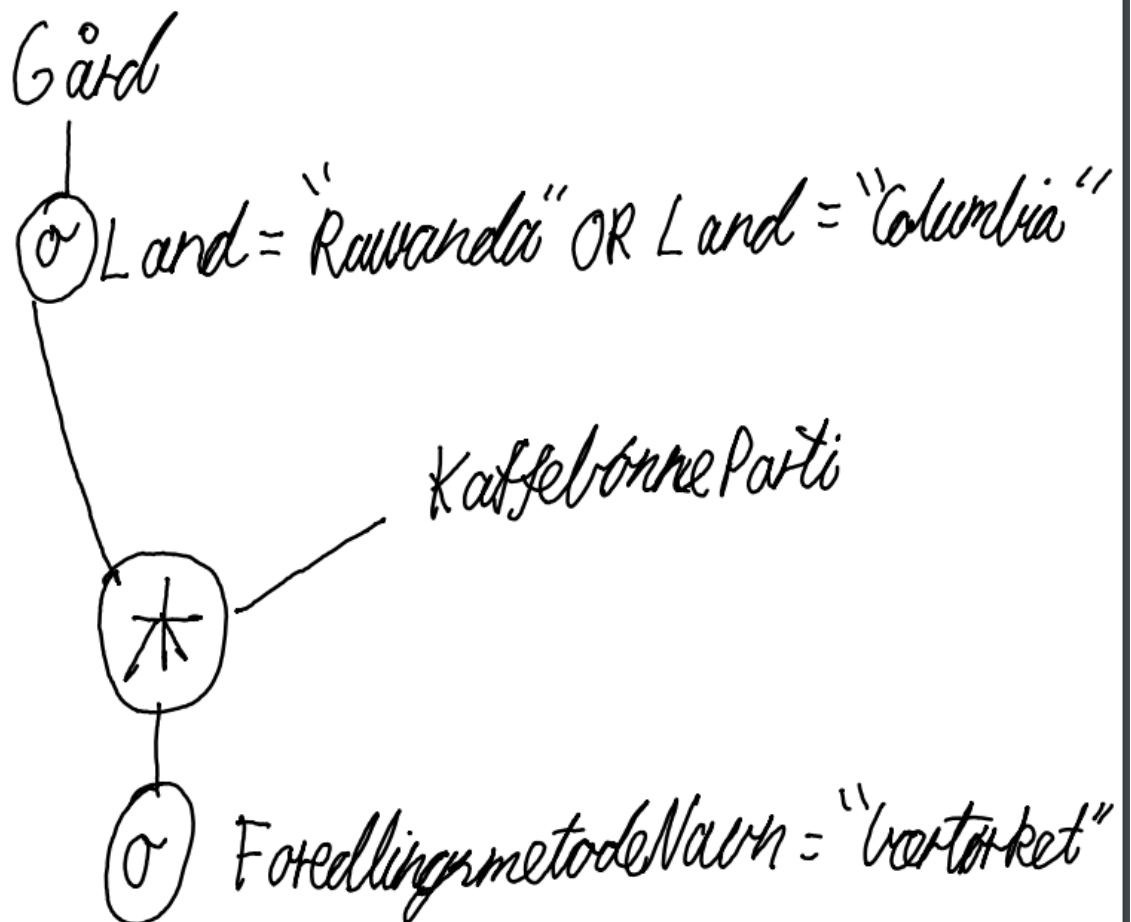 Gård
σ Land = "Rawanda" OR Land = "Columbia"
KaffebönneParti
*
σ ForedlingsmetodeNavn = "bærtørket"